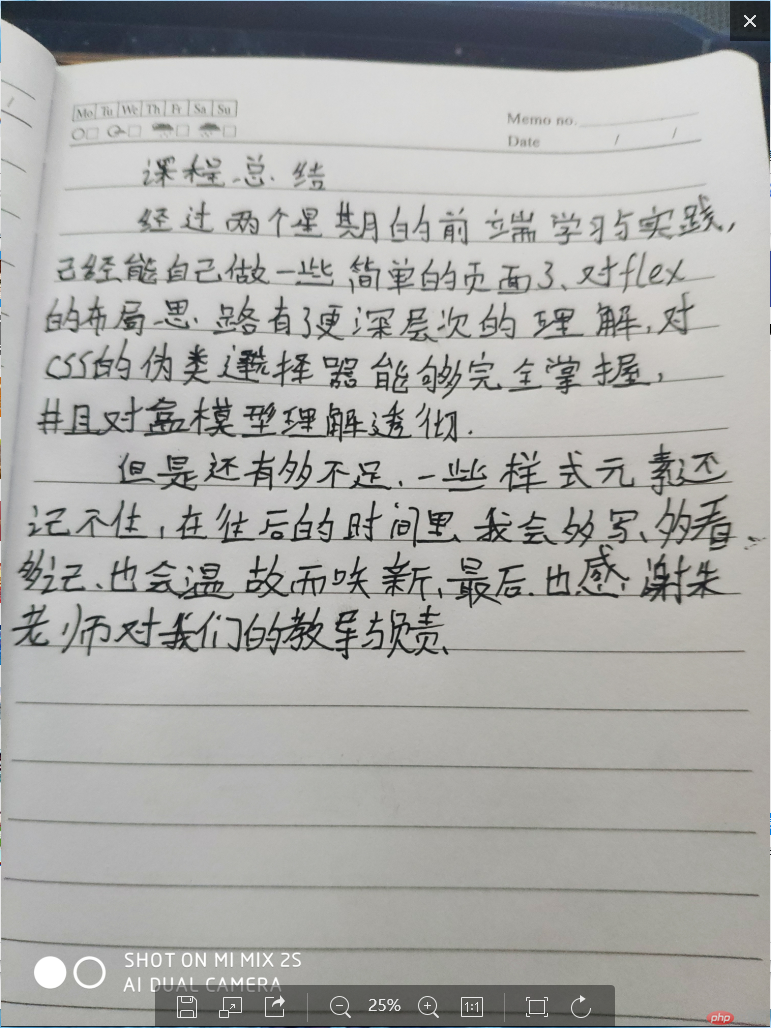 Mo Tu We Th Fr Sa Su
Memo no.
Date / /
课程总结
经过两个星期的前端学习与实践,
已经能自己做一些简单的页面了、对flex
的布局思路有了更深层次的理解,对
css的伪类选择器能够完全掌握,
并且对盒模型理解透彻.
但是还有多不足、一些样式元素还
记不住,在往后的时间里、我会多写、多看、
多记、也会温故而知新、最后、也感谢朱
老师对我们的教导与负责、
SHOT ON MI MIX 2S
AI DUAL CAMERA
25%
1:1
php